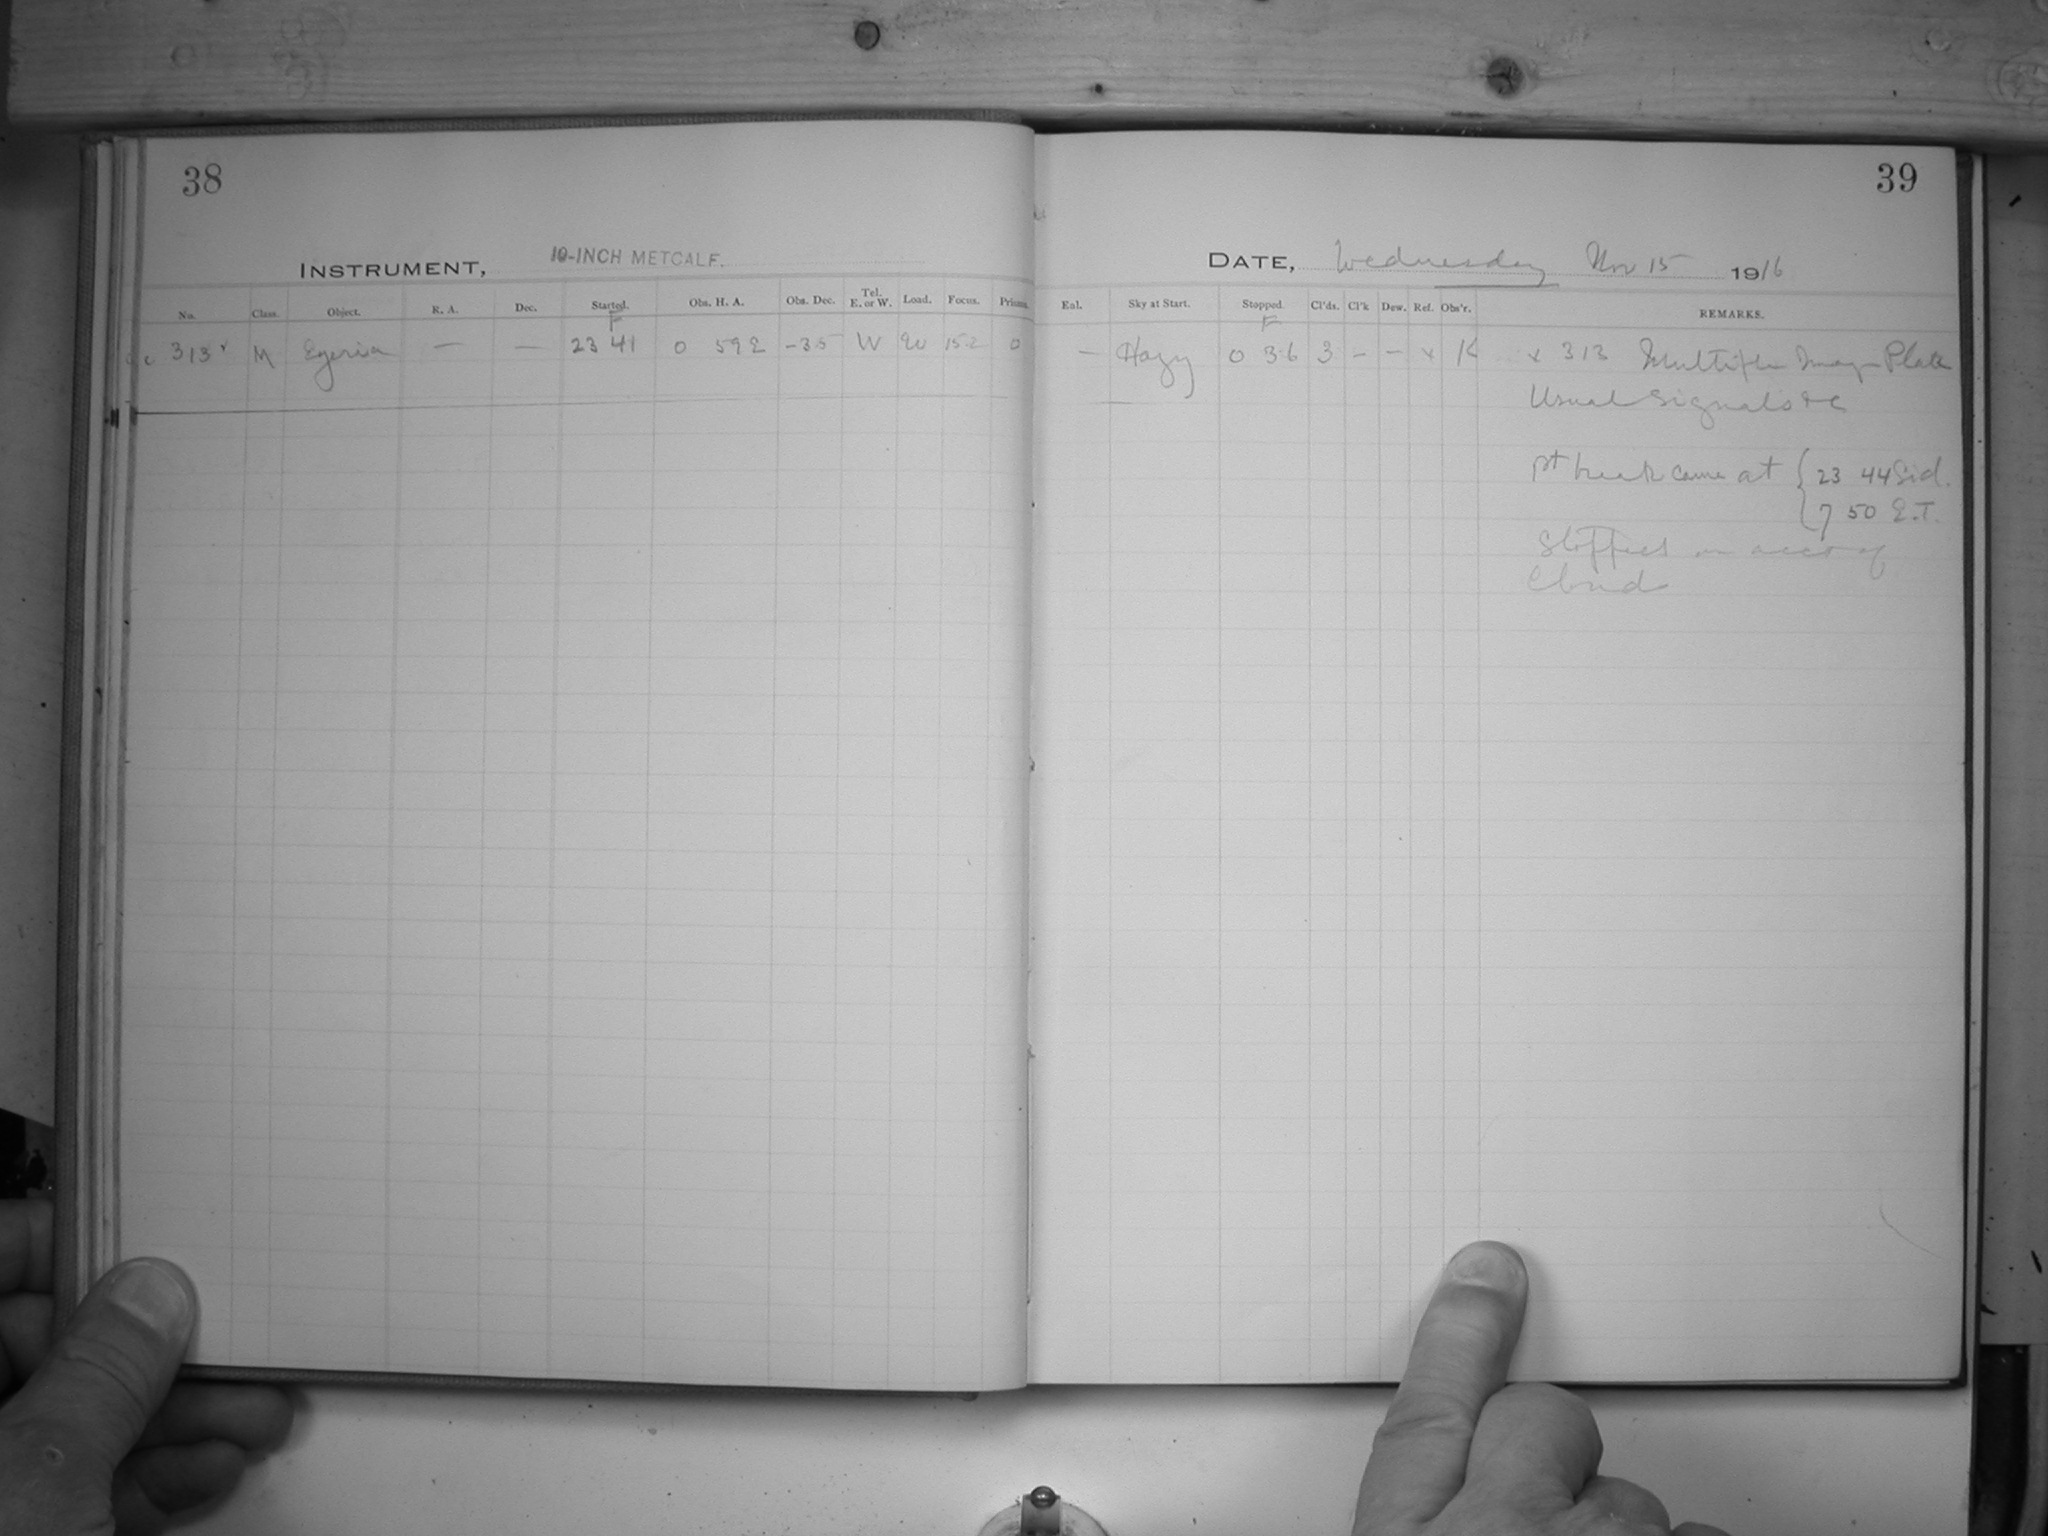 38
39
INSTRUMENT, 10-INCH METCALF.
DATE, Wednesday Nov 15 1916
No. Class. Object. R. A. Dec. Started. Obs. H. A. Obs. Dec. Tel. E. or W. Load. Focus. Prisms.
Eal. Sky at Start. Stopped. Cl'ds. Cl'k Dew. Ref. Obs'r. REMARKS.
F
F
c 313 M Egeria — — 23 41 0 592 -35 W 152 0
— Hazy 0 36 3 - - x K x 313 Multiple Image Plate
Usual Signals
came at { 23 44 Sid.
7 50 E.T.
Stopped on acct of
Cloud